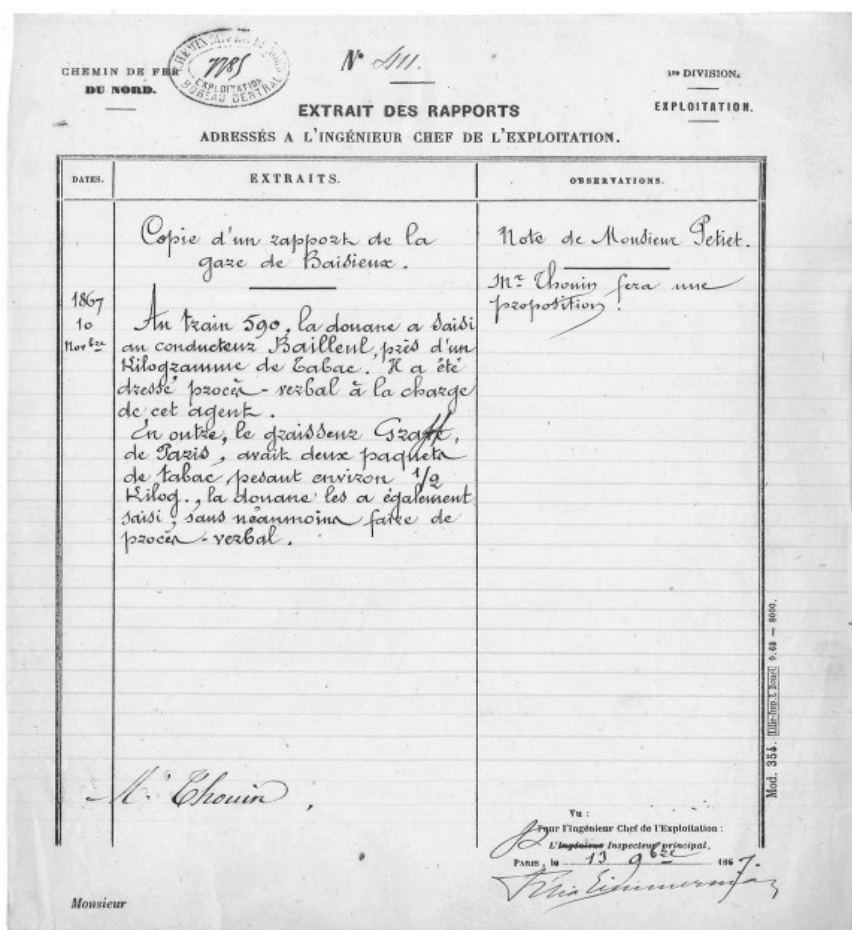 CHEMIN DE FER
DU NORD.
7785
EXPLOITATION
BUREAU CENTRAL
N° 411.
1re DIVISION.
EXPLOITATION.
EXTRAIT DES RAPPORTS
ADRESSÉS A L'INGÉNIEUR CHEF DE L'EXPLOITATION.
DATES.
EXTRAITS.
OBSERVATIONS.
Copie d'un rapport de la
gare de Baisieux.
1867
10
Novbre
Au train 590, la douane a saisi
au conducteur Bailleul, près d'un
Kilogramme de Tabac. Il a été
dressé procès-verbal à la charge
de cet agent.
En outre, le graisseur Graff,
de Paris, avait deux paquets
de tabac pesant environ 1/2
Kilog., la douane les a également
saisi, sans néanmoins faire de
procès-verbal.
Note de Monsieur Petiet.
Mr Thouin fera une
proposition.
Mr Thouin,
Vu :
Pour l'Ingénieur Chef de l'Exploitation :
L'Ingénieur Inspecteur principal,
PARIS, le 13 9bre 1867.
Monsieur
Mod. 354. 9.63 — 8000.